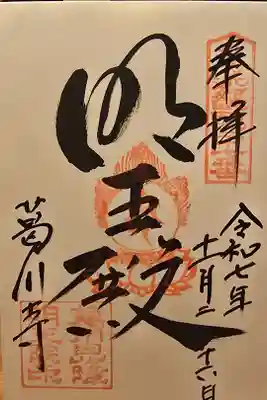 奉拝
令和七年
十一月二十六日
明王殿
葛川寺